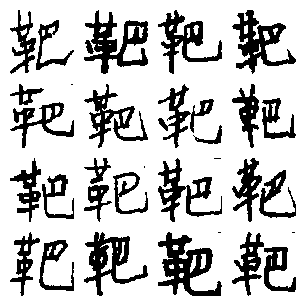 靶靶靶靶
靶靶靶靶
靶靶靶靶
靶靶靶靶